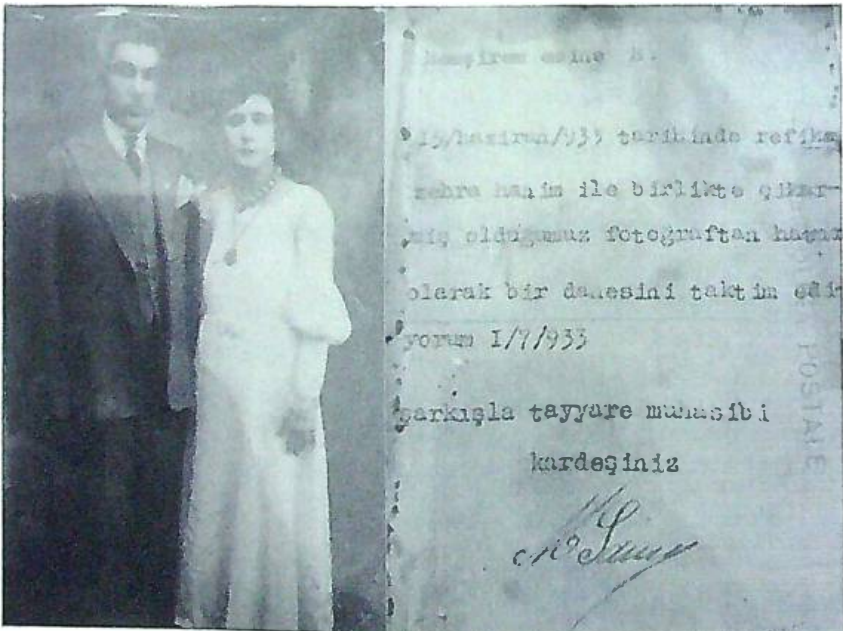 Hemşirem emine H.
15/haziran/933 tarihinde refikam
zehra hanim ile birlikte çikar-
miş olduğumuz fotoğraftan hatıra
olarak bir danesini taktim edi-
yorum I/7/933
şarkışla tayyare muhasibi
kardeşiniz
POSTALE